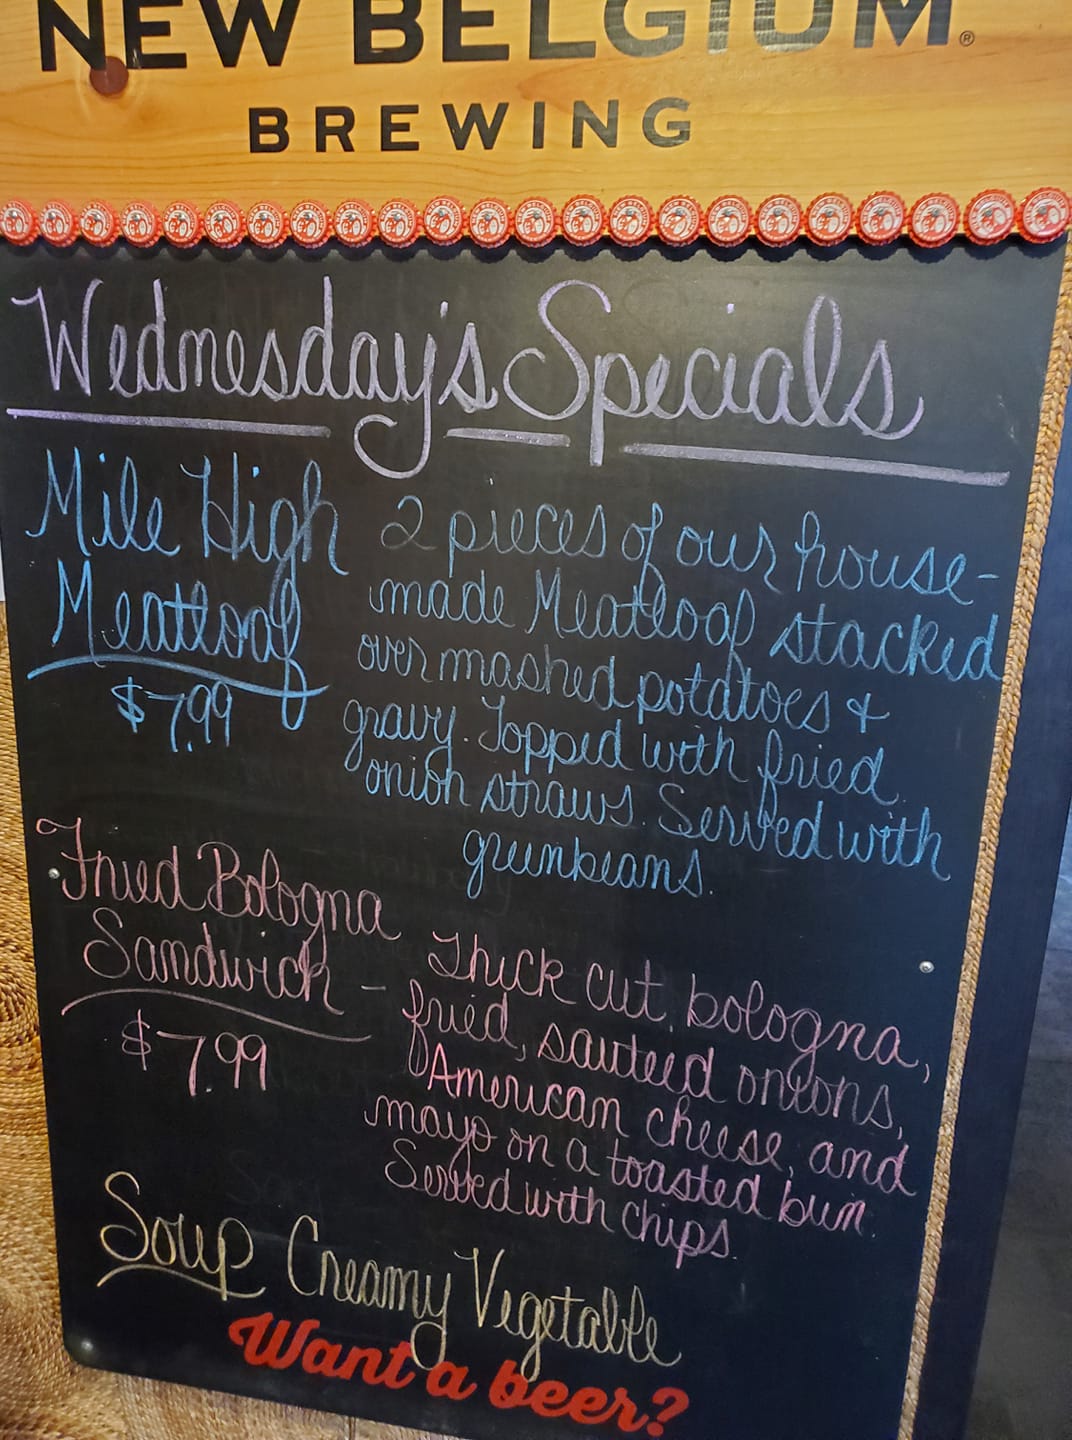 NEW BELGIUM®
BREWING
Wednesday's Specials
Mile High
Meatloaf
$7.99
2 pieces of our house-
made Meatloaf stacked
over mashed potatoes &
gravy. Topped with fried
onion straws. Served with
greenbeans.
Fried Bologna
Sandwich -
$7.99
Thick cut bologna,
fried, sauteed onions,
American cheese, and
mayo on a toasted bun.
Served with chips.
Soup Creamy Vegetable
Want a beer?